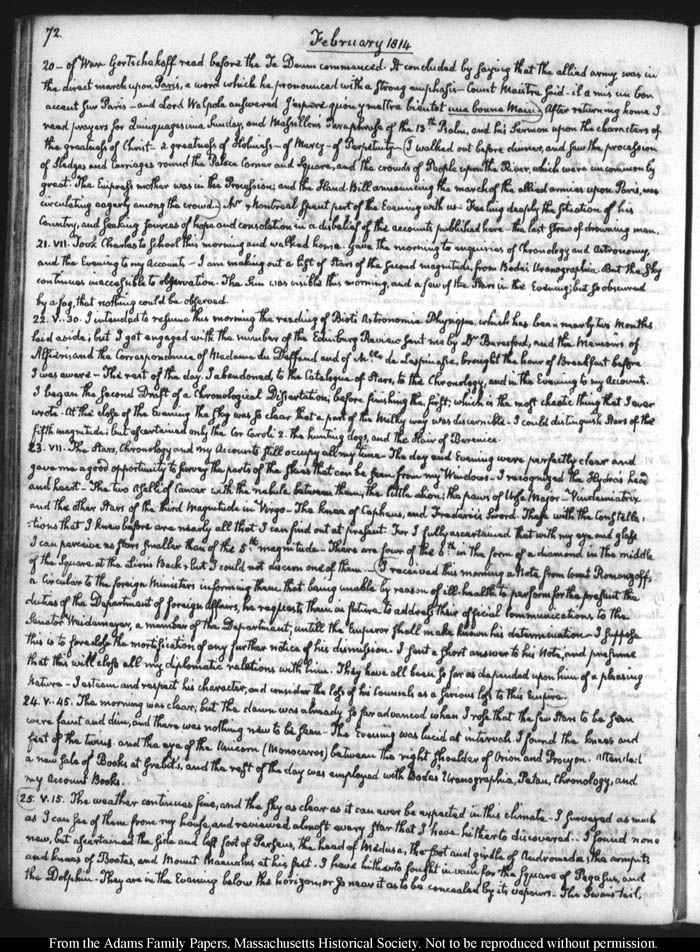 72.
February 1814
20 – of War Gortschakoff read before the Te Deum commenced. It concluded by saying that the allied army was in
the direct march upon Paris, a word which he pronounced with a strong emphasis – Count Maistre said – il a mis un bon
accent sur Paris – and Lord Walpole answered J'espere qu'on y mettra bientot une bonne Main. After returning home I
read prayers for Quinquagesima Sunday, and Massillon's Paraphrase of the 13th Psalm, and his Sermon upon the characters of
the greatness of Christ – a greatness of Holiness – of Mercy – of Perpetuity – I walked out before dinner, and saw the procession
of Sledges and Carriages round the Palace Corner and Square, and the crowds of People upon the River, which were uncommonly
great. The Empress mother was in the Procession; and the Hand Bill announcing the march of the allied armies upon Paris, was
circulating eagerly among the crowd. Mr Montréal spent part of the Evening with us – Feeling deeply the situation of his
Country, and seeking sources of hope and consolation in a disbelief of the accounts published here – the last straw of drowning man.
21. VII. Took Charles to School this morning and walked home. Gave the morning to enquiries of Chronology and Astronomy,
and the Evening to my Accounts – I am making out a list of Stars of the second magnitude, from Bode's Uranographia. But the Sky
continues inaccessible to observation. The Sun was visible this morning, and a few of the Stars in the Evening; but so obscured
by a fog, that nothing could be observed.
22. V. 30. I intended to resume this morning the reading of Biot's Astronomie Physique, which has been nearly two Months
laid aside; but I got engaged with the number of the Edinburg Review sent me by Dr Beresford, and the Memoirs of
Alfieri, and the Correspondence of Madame du Deffand and of Mlle de Lespinasse, brought the hour of Breakfast before
I was aware – The rest of the day, I abandoned to the Catalogue of Stars, to the Chronology, and in the Evening to my Accounts.
I began the second Draft of a Chronological Dissertation; before finishing the first; which is the most chaotic thing that I ever
wrote. At the close of the Evening the Sky was so clear that a part of the Milky way was discernible – I could distinguish Stars of the
fifth magnitude; but ascertained only the Cor Caroli 2. the hunting dogs, and the Hair of Berenice.
23. VII. The Stars, Chronology and my Accounts still occupy all my time – The day and Evening were perfectly clear and
gave me a good opportunity to survey the parts of the Sphere that can be seen from my Windows – I recognized the Hydra's head
and heart – The two Aselli of Cancer with the nebula between them; the little Lion; the paws of Ursa Major – Vindemiatrix
and the other Stars of the third Magnitude in Virgo – The knee of Cepheus, and Frederic's Sword. These with the Constella-
-tions that I knew before are nearly all that I can find out at present. For I fully ascertained that with my eye and glass
I can perceive no Stars smaller than of the 5th magnitude – There are four of the 6th in the form of a diamond in the middle
of the Square at the Lion's Back; but I could not discern one of them – I received this morning a Note from Count Romanzoff,
a Circular to the foreign Ministers informing them that being unable by reason of ill-health to perform for the present the
duties of the Department of foreign affairs, he requests them in future to address their official Communications to the
Senator Weidemeyer, a member of the Department; untill the Emperor shall make known his determination – I suppose
this is to foreclose the mortification of any further notice of his dismission. I sent a short answer to his Note, and presume
that this will close all my diplomatic relations with him. They have all been so far as depended upon him of a pleasing
Nature – I esteem and respect his character, and consider the loss of his Counsels as a serious loss to this Empire.
24. V. 45. The morning was clear; but the dawn was already so far advanced when I rose that the few Stars to be seen
were faint and dim, and there was nothing new to be seen – The Evening was lucid at intervals. I found the knees and
feet of the twins. and the eye of the Unicorn (Monoceros) between the right shoulder of Orion and Procyon. Attended
a new Sale of Books at Grabit's, and the rest of the day was employed with Bode's Uranographia, Petau, Chronology, and
my Account Books.
25. V. 15. The weather continues fine, and the Sky as clear as it can ever be expected in this climate – I surveyed as much
as I can see of them from my house, and reviewed almost every Star that I have hitherto discovered. I found none
new, but ascertained the side and left foot of Perseus, the head of Medusa, the foot and girdle of Andromeda; the armpits
and knees of Bootes, and Mount Maenalus at his feet. I have hitherto sought in vain for the Square of Pegasus, and
the Dolphin – They are in the Evening below the horizon, or so near it as to be concealed by its vapours – The Swan's tail,
From the Adams Family Papers, Massachusetts Historical Society. Not to be reproduced without permission.